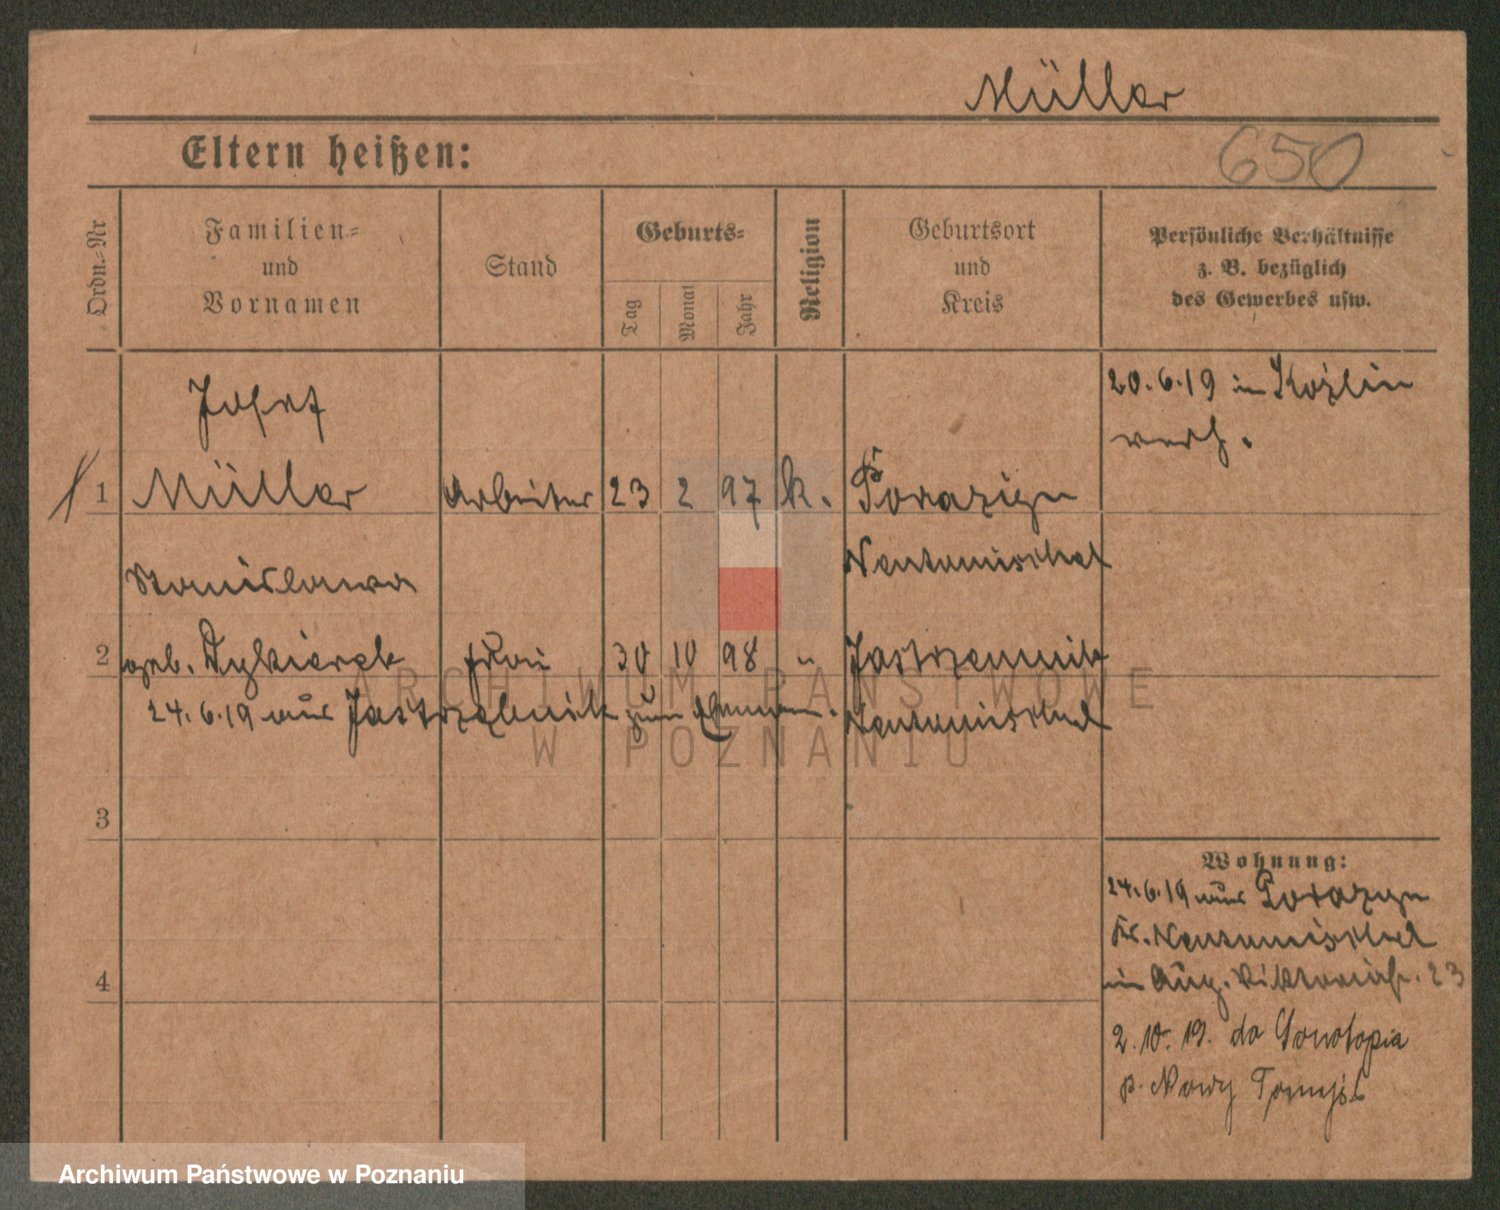 Müller
Eltern heißen:
650
Ordn.-Nr
Familien-
und
Vornamen
Stand
Geburts-
Tag
Monat
Jahr
Religion
Geburtsort
und
Kreis
Persönliche Verhältnisse
z. B. bezüglich
des Gewerbes usw.
Josef
20.6.19 in Kozlin
verh.
1 Müller Arbeiter 23 2 97 k. Porazyn
Neutomischel
Stanislawa
2 geb. Frau 30 10 98 "
24.6.19 aus zum Ehemann. Neutomischel
3
Wohnung:
24.6.19 aus Porazyn
Kr. Neutomischel
in Aug. Viktoriastr. 23
4
2.10.19. do Sonotopia
p. Nowy Tomyśl
ARCHIWUM PAŃSTWOWE
W POZNANIU
Archiwum Państwowe w Poznaniu